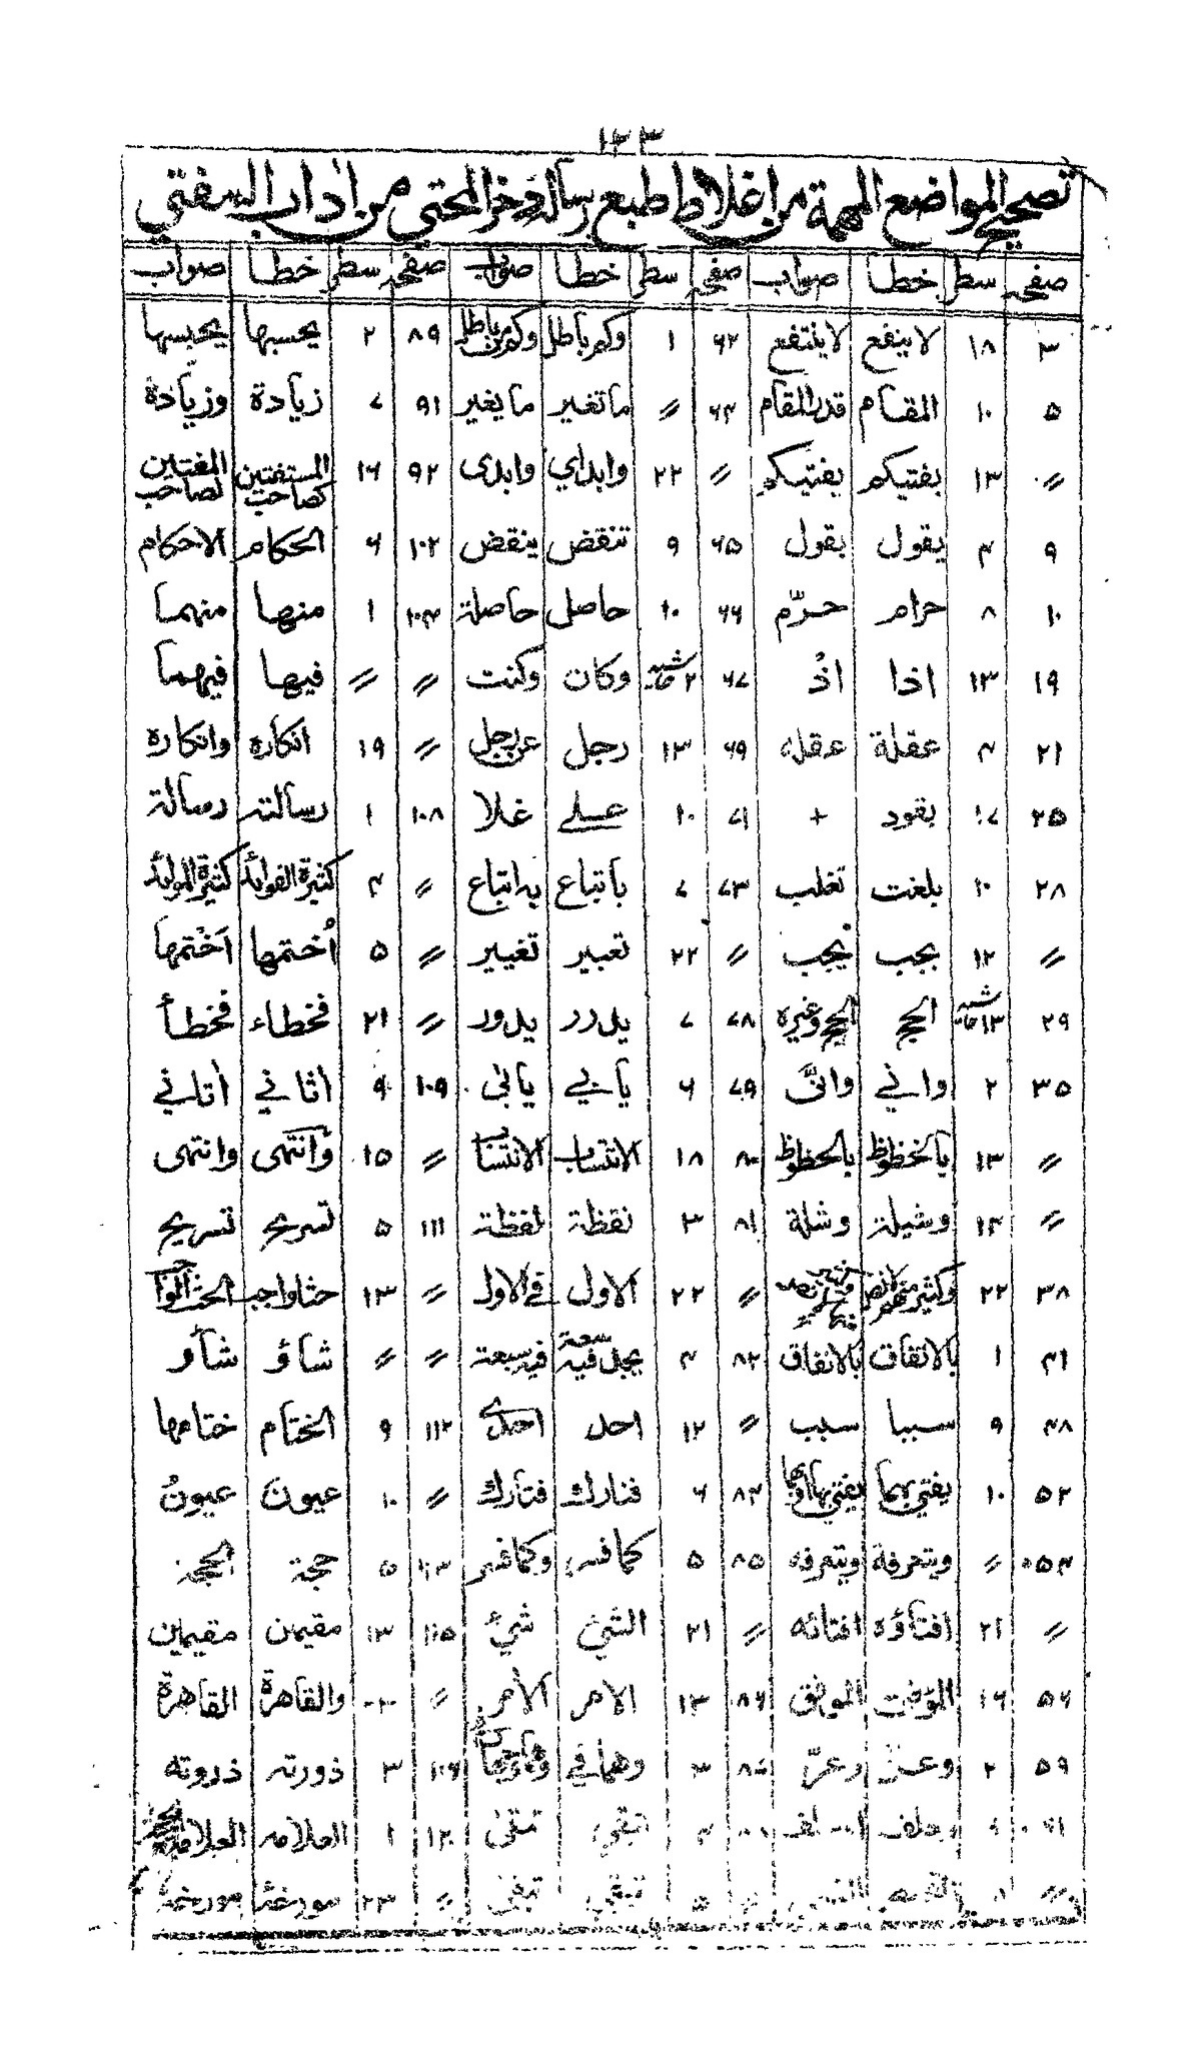 ١٢٣
تصحيح المواضع المهمة من اغلاط طبع رسالة ذخر المحتى من اداب المفتي
صفحہ سطر خطا صواب صفحہ سطر خطا صواب صفحہ سطر خطا صواب
٣ ١٨ لا ينفع لا ينتفع ٦٢ ١ وكم باطل وكم من باطل ٨٩ ٢ يحسبها يحبسها
٥ ١٠ المقام قدر المقام ٦٤ 〃 ما تغير ما يغير ٩١ ٧ زيادة وزيادة
〃 ١٣ بفتيكم يفتيكم 〃 ٢٢ وابداي وابدى ٩٢ ١٦ المستفتين كصاحب المفتين لصاحب
٩ ٤ يقول بقول ٦٥ ٩ تنقض ينقض ١٠٢ ٦ الحكام الاحكام
١٠ ٨ حرام حرّم ٦٦ ١٠ حاصل حاصلة ١٠٤ ١ منها منهما
١٩ ١٣ اذا اذْ ٦٧ ٢ حاشیہ وكان وكنت 〃 〃 فيها فيهما
٢١ ٤ عقلة عقله ٦٩ ١٣ رجل عن رجل 〃 ١٩ انكاره وانكاره
٢٥ ١٧ بقود + ٧١ ١٠ علے غلا ١٠٨ ١ رسالتہ رسالة
٢٨ ١٠ بلغت تغلب ٧٣ ٧ باتباع بہ اتباع 〃 ٤ كثيرة الفوائد كثيرة الموائد
〃 ١٢ بجب يجب 〃 ٢٢ تعبير تغيير 〃 ٥ اُختمها اَخْتمها
٢٩ ١٣ حاشیہ الحج الحج وغيره ٧٨ ٧ يدرر يدور 〃 ٢١ فخطاء فخطأ
٣٥ ٢ واني وانّى ٧٩ ٦ يابي يأبى ١٠٩ ٩ أثاني أتاني
〃 ١٣ بالخظوظ بالحظوظ ٨٠ ١٨ الانتساب الانتساب 〃 ١٥ وأنتمى وانتمى
〃 ١٤ وشيلة وشلة ٨١ ٣ نقظة لفظة ١١١ ٥ تسرح تسريح
٣٨ ٢٢ 〃 ٢٢ الاول في الاول 〃 ١٣ حثاواجب
٤١ ١ بالاتقاق بالاتفاق ٨٢ ٤ يجد فيه سعة فيه سعة 〃 〃 شاؤ شأو
٤٨ ٩ سببا سبب 〃 ١٢ احد احدى ١١٢ ٩ الختام ختامها
٥٢ ١٠ يفتي بهما ٨٣ ٦ فنارك فتارك 〃 ١٠ عيونَ عيونُ
٥٤ 〃 ويتعرفة ويتعرفه ٨٥ ٥ كمافسر وكمافسر ١١٣ ٥ حجة الحجة
〃 ٢١ افتاؤه افتائه 〃 ٢١ الشئ شئ ١١٥ ١٣ مقيمن مقيمين
٥٦ ١٦ الموفق ٨٦ ١٣ الامر الأمر 〃 والقاهرة القاهرة
٥٩ ٢ وعزّ ٣ وهمافي ١١٦ ٣ ذورته ذروته
٦١ تبقي تبقى ١٢٠ ١ العلامه
〃 ٨ 〃 ٢٣ مورخة